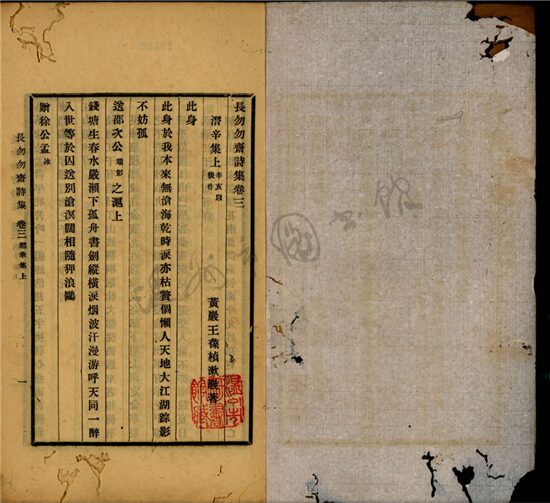 長勿勿齋詩集卷三
潛辛集上 辛亥後作
黃巖王葆楨漱巖著
此身
此身於我本來無滄海乾時淚亦枯贅個懶人天地大江湖踪影
不妨孤
送邵次公瑞彭之滬上
錢塘生春水嚴瀨下孤舟書劍縱橫淚烟波汗漫游呼天同一醉
入世等於囚送別滄溟闊相隨狎浪鷗
贈徐公孟沐
長勿勿齋詩集 卷三 潛辛集上